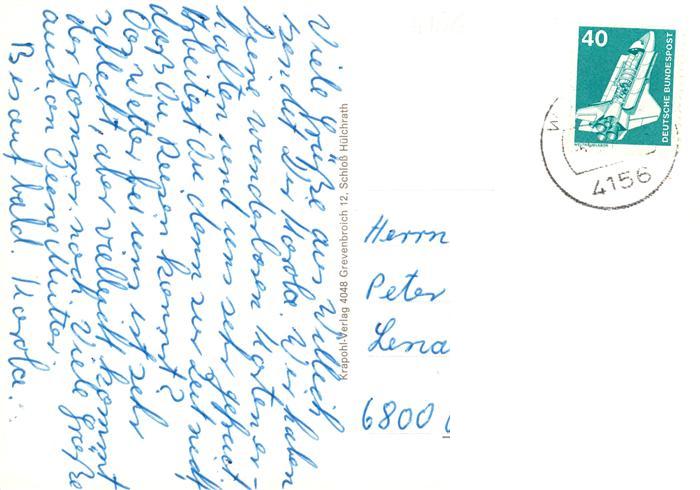 Viele Grüße aus Willich
sendet Dir Karola. Wir haben
Deine wunderbaren Karten er-
halten und uns sehr gefreut.
Arbeitest Du denn zur Zeit nicht,
daß Du Reisen kannst?
Das Wetter bei uns ist sehr
schlecht, aber vielleicht kommt
der Sommer noch. Viele Grüße
auch an Deine Mutter
Bis auf bald. Karola.
Krapohl-Verlag 4048 Grevenbroich 12, Schloß Hülchrath
40
DEUTSCHE BUNDESPOST
4156
Herrn
Peter
Lena
6800